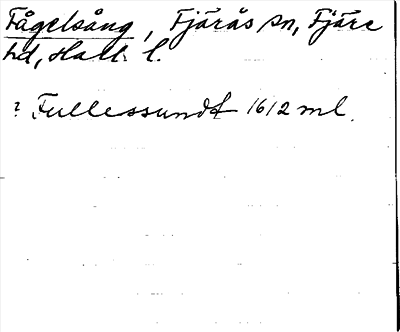 Fågelsång, Fjärås sn, Fjäre
hd, Hall. l.
? Fullessundt 1612 ml.